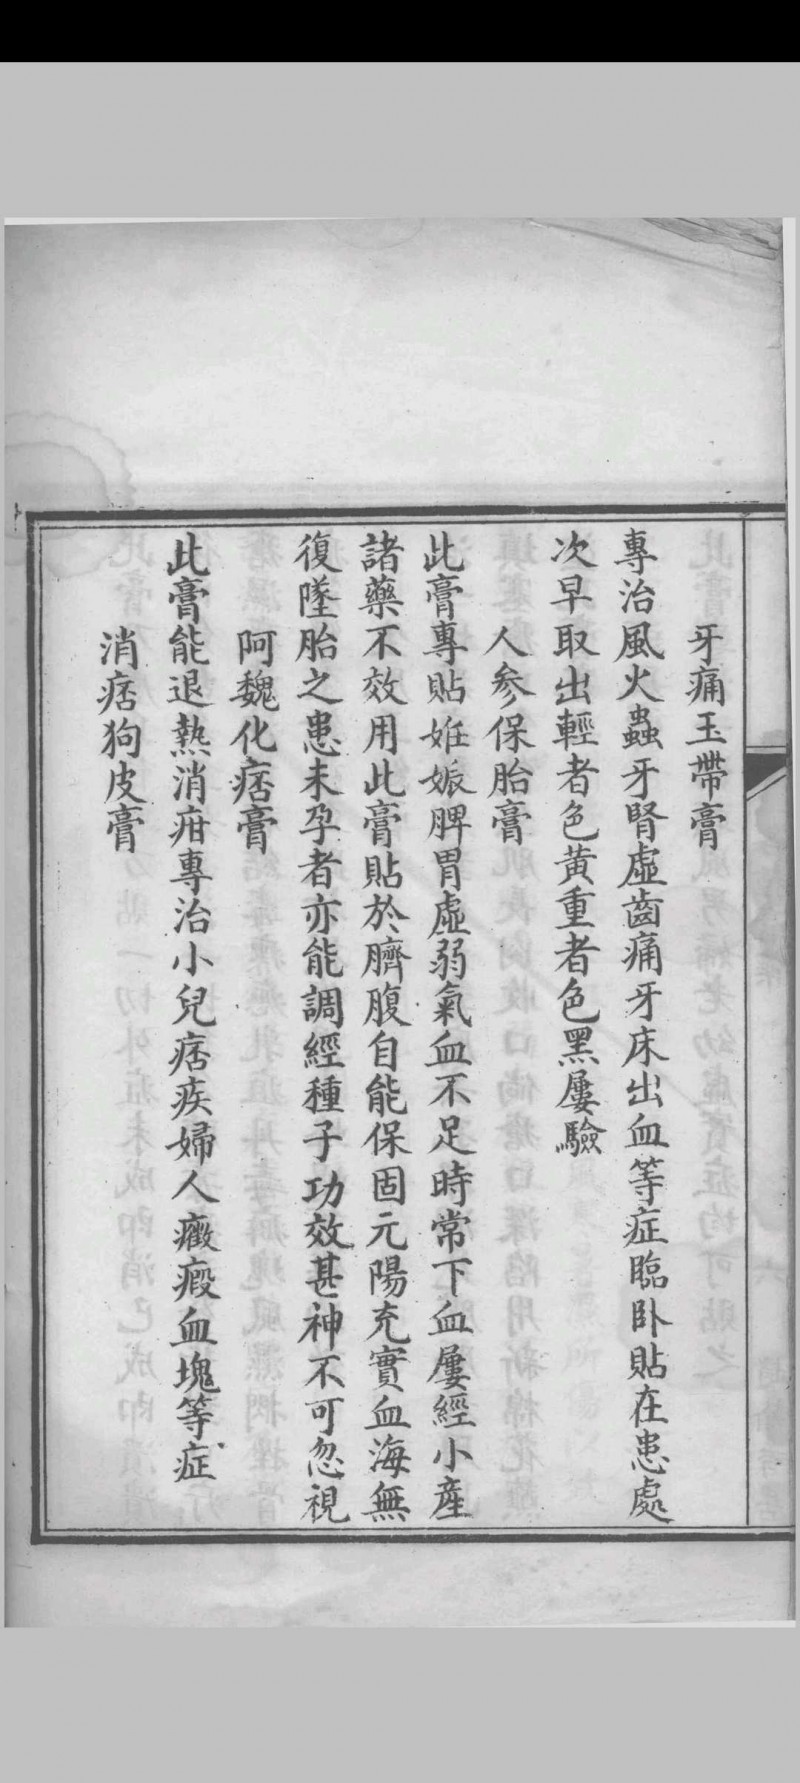 牙痛玉帶膏
專治風火蟲牙腎虛齒痛牙床出血等症臨卧貼在患處
次早取出輕者色黃重者色黑屢驗
人參保胎膏
此膏專貼妊娠脾胃虛弱氣血不足時常下血屢經小產
諸藥不效用此膏貼於臍腹自能保固元陽充實血海無
復墜胎之患未孕者亦能調經種子功效甚神不可忽視
阿魏化痞膏
此膏能退熱消疳專治小兒痞疾婦人癥瘕血塊等症
消痞狗皮膏